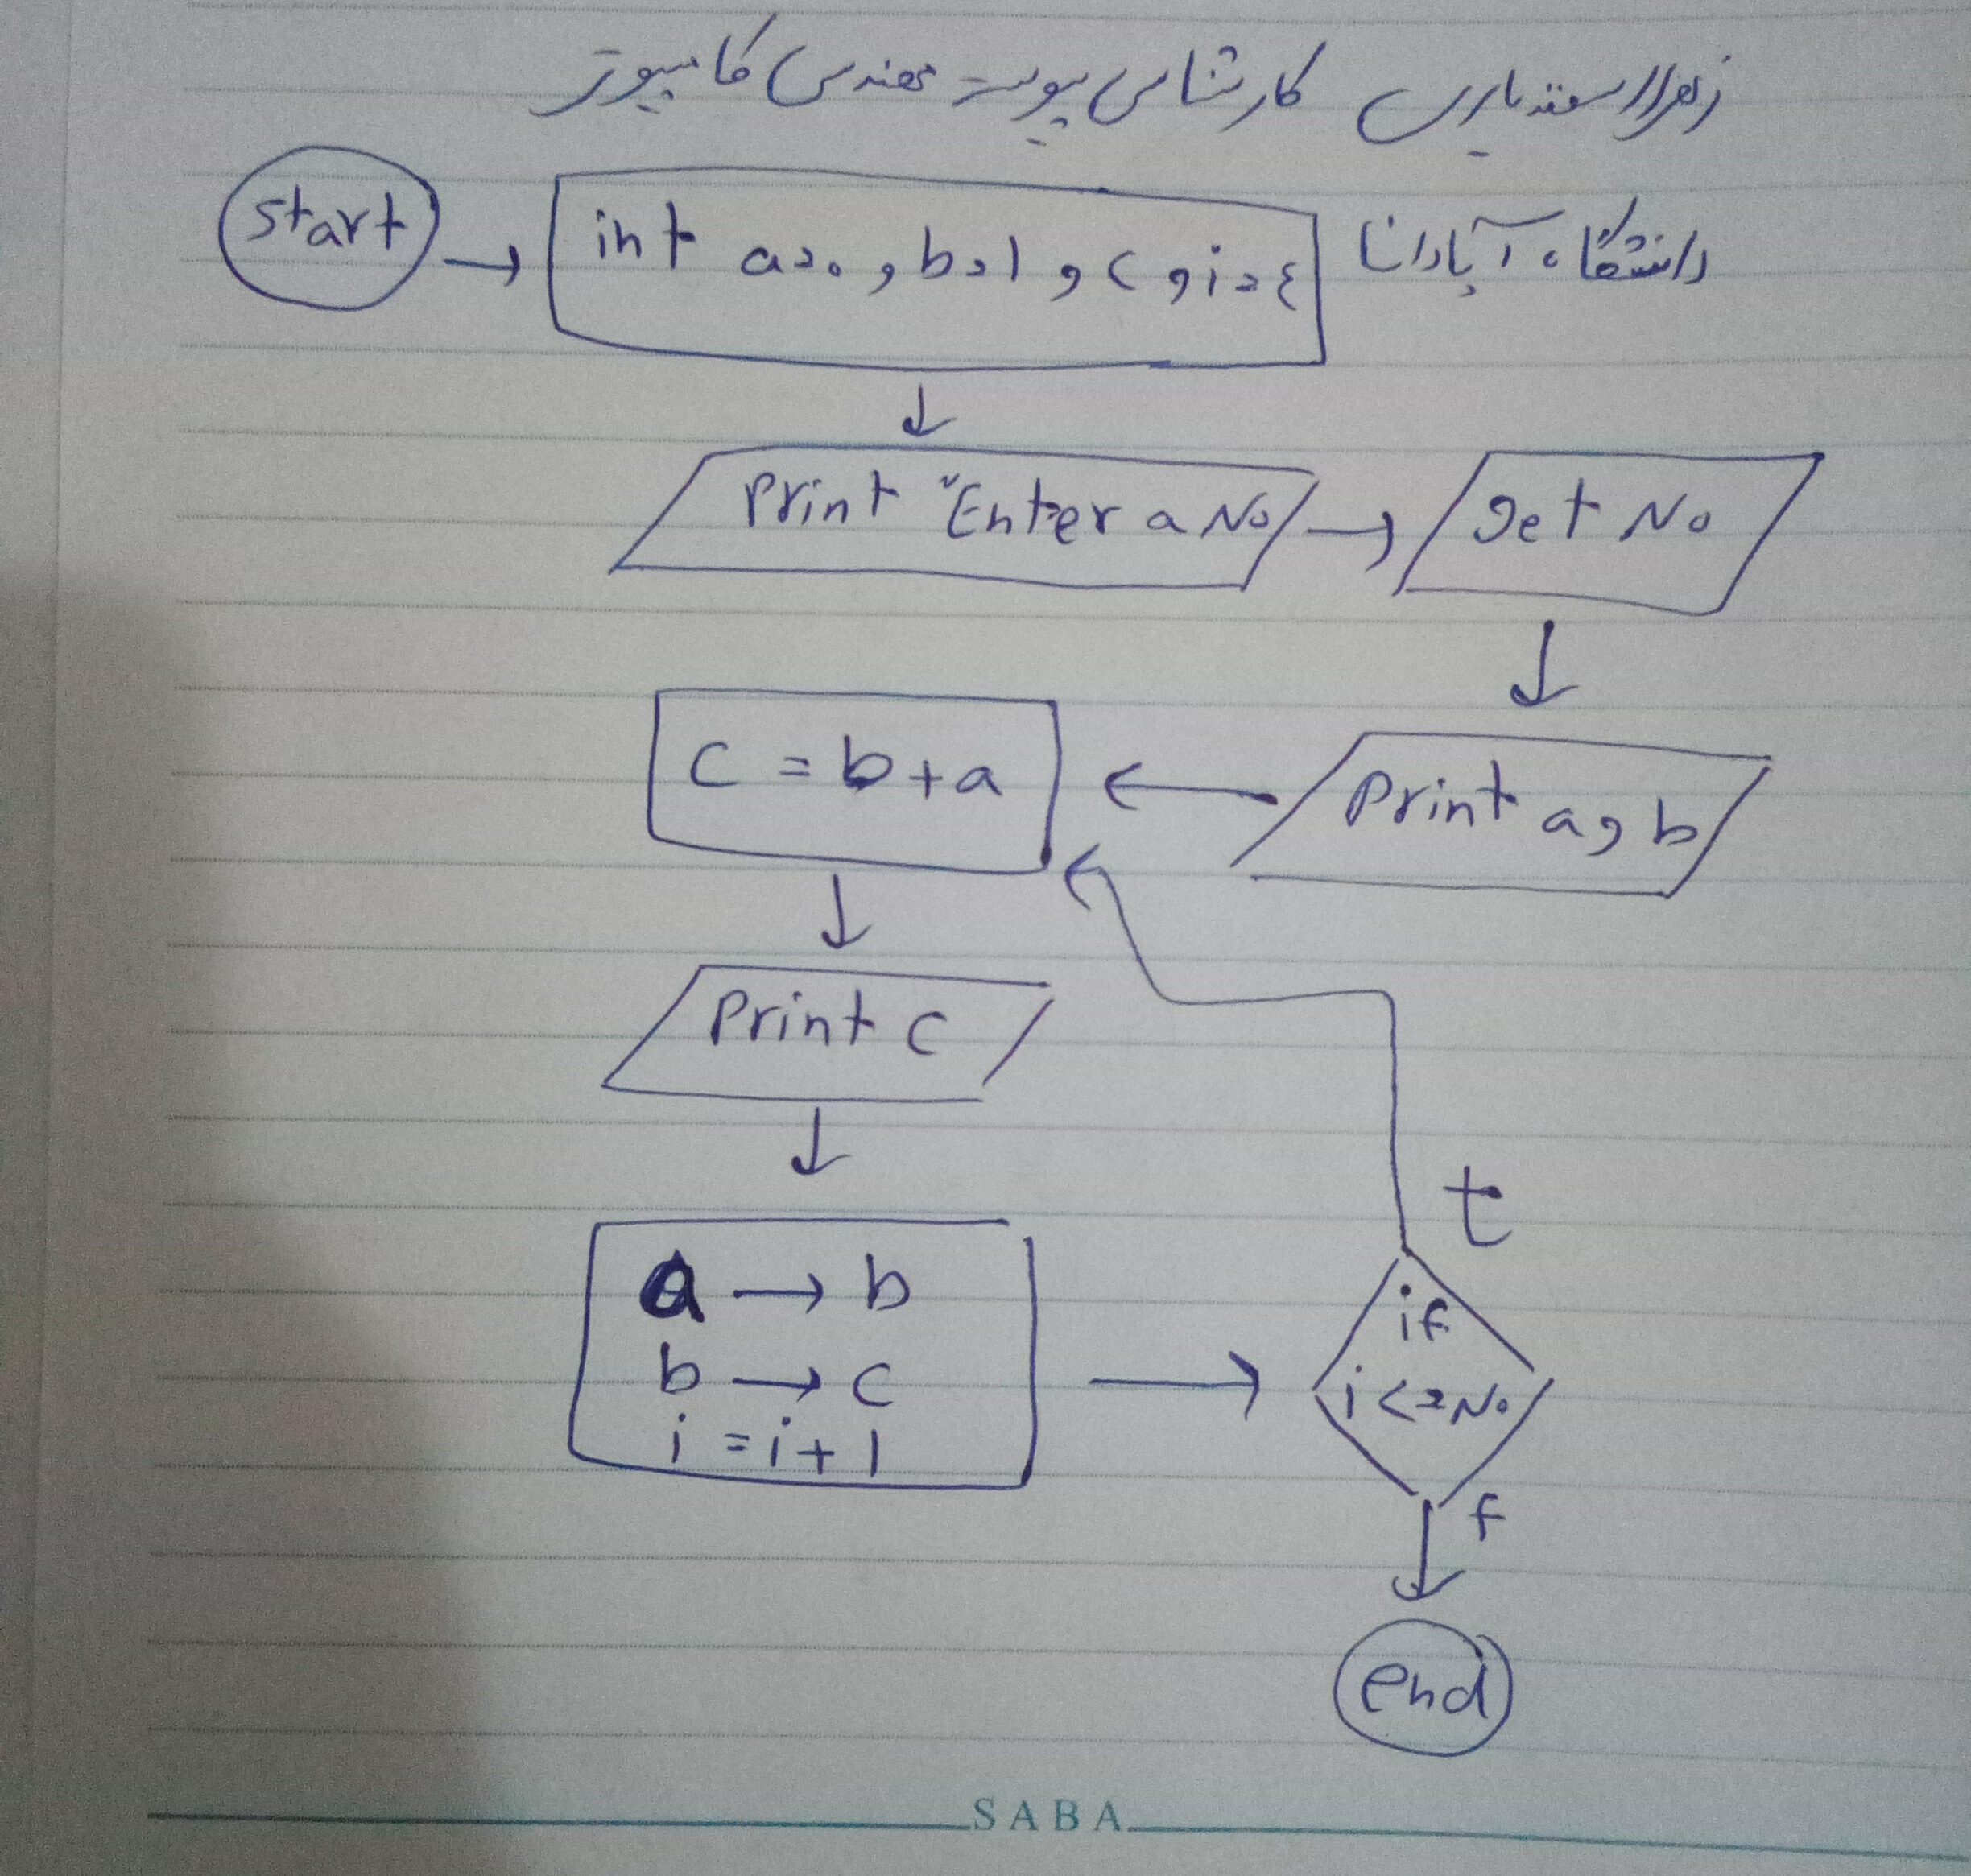 زهرا اسفندیاری کارشناسی پیوسته مهندسی کامپیوتر
دانشگاه آپادانا
start
int a=۰ , b=1 , c , i=٤
Print "Enter a No
get No
Print a, b
c = b+a
Print c
a → b
b → c
i = i+1
t
if
i<=No
f
end
SABA